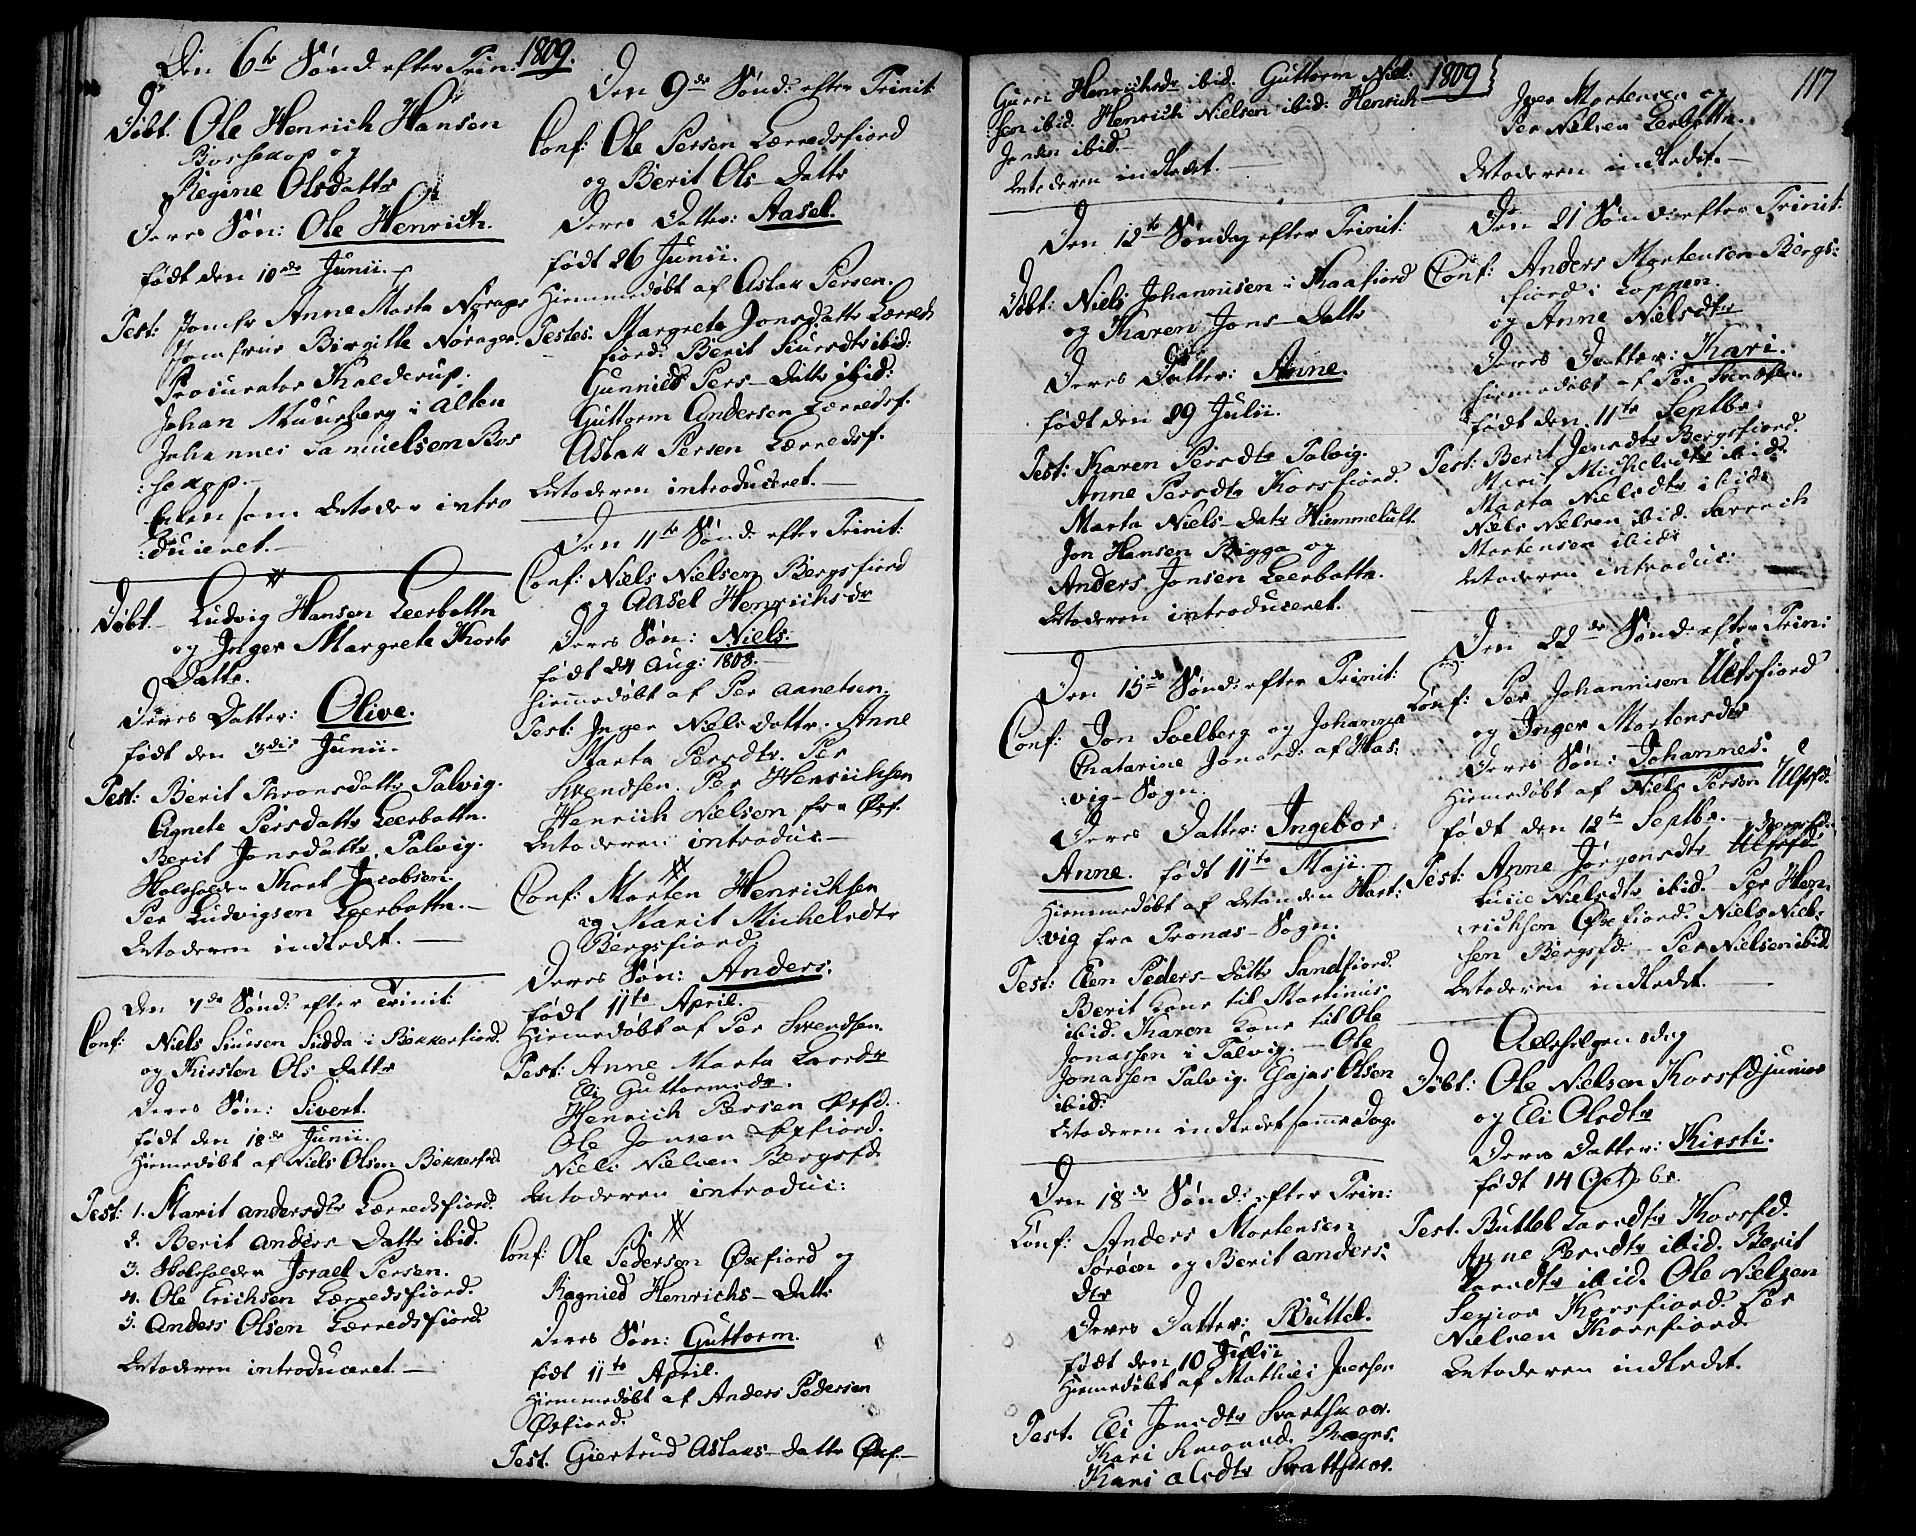 1809.
Den 6te Sønd: efter Trin:
Døbt. Ole Henrich Hansen
Bossekop og
Regine Olsdattr
Deres Søn: Ole Henrich.
født den 10de Junii.
Test: Jomfr Anne Marta Nørager
Jomfrue Birgitte Nørager.
Procurator Kalderup.
Johan Muursberg i Alten
Johannes Samuelsen Bos
:sekop.
intro
:duceret.
Døbt. Ludvig Hansen Leerbottn
og Inger Margreta Korts
Dattr.
Deres Datter: Olive.
født den 3die Junii.
Test: Berit Thronsdattr Talvig.
Agnete Persdattr Leerbottn.
Berit Jonsdattr Talvig.
Kort Jacobsen.
Per Ludvigsen Leerbottn.
Moderen indledet.
Den 7de Sønd: efter Trinit:
Conf: Niels Siursen Sudda i Bekkerfiord.
og Kirsten Ols Dattr
Deres Søn: Sivert.
født den 18de Junii.
Hiemedøbt af Niels Olsen Bekkerfrd.
Test: 1. Marit Andersdtr Lerredsfiord.
2. Berit Anders Dattr ibid.
3. Israel Persen.
4. Ole Erichsen Lerredsfiord.
5. Anders Olsen Lærredsfiord.
Moderen introduceret.
Den 9de Sønd: efter Trinit:
Conf: Ole Persen Lærredsfiord
og Berit Ols-Dattr
Deres Datter: Aasel.
født 26 Junii.
Hiemmedøbt af Aslak Persen.
Testes. Margreta Jonsdattr Lerreds
fiord. Berit Siursdtr ibid:
Gunnild Pers-Dattr ibid:
Guttorm Andersen Lærredsf.
Aslak Persen Lærredsf.
Moderen introduceret.
Den 11te Sønd: efter Trinit:
Conf: Niels Nielsen Bergsfiord
og Aasel Henrichsdr
Deres Søn: Niels.
født 24 Aug: 1808.
Hiemmedøbt af Per Aanetsen.
Test: Inger Nielsdattr. Anne
Marta Persdtr. Per
Svendsen. Per Henrichsen
Henrich Nielsen fra Øxf.
Moderen introduc:
Conf: Morten Henrichsen
og Marit Michelsdtr
Bergsfiord.
Deres Søn: Anders.
født 11te April.
Hiemmedøbt af Per Svendsen.
Test: Anne Marta Larsdtr
Eli Guttormsdr.
Henrich Persen Øxfd.
Ole Jonsen Øxfiord.
Niels Nielsen Bergsfd.
Moderen introduc:
Conf: Ole Pedersen Øxefiord og
Ragnild Henrichs-Dattr
Deres Søn: Guttorm.
født 11te April.
Hiemmedøbt af Anders Pedersen
Øxfiord.
Test. Giertrud Aslaks-Dattr Øxf.
1809
117
Gurri Henrichsdr ibid. Guttorm Niel:
sen ibid. Henrich Nielsen ibid: Henrich
Jonsen ibid.
Moderen indledet.
Den 12te Søndag efter Trinit:
Døbt: Niels Johannisen i Kaafiord
og Karen Jons-Dattr
Deres Datter: Anne.
født den 29 Julii.
Test: Karen Persdtr Talvig.
Anne Persdtr Korsfiord.
Marta Niels-Datr Himmeluft.
Jon Hansen Bigga og
Anders Jonsen Leerbottn.
Moderen introduceret.
Den 15de Sønd: efter Trinit:
Conf: Jon Soelberg og Johanna
Chatarine Jonasd: af Has:
:vig-Sogn.
Deres Datter: Ingebor
Anne. født 11te Maji.
Hiemmedøbt af Hart:
:vig fra Tronæs-Sogn.
Test: Elen Peders-Dattr Sandfiord.
Berit Kone til Martinus
ibid. Karen Kone til Ole
Jonassen i Talvig. Ole
Jonassen Talvig. Gajus Olsen
ibid:
Moderen indledet samme Dag.
Den 18de Sønd: efter Trin:
Conf: Anders Mortensen
Sørøen og Berit Anders:
dtr
Deres Datter: Buttel.
født den 10 Julii
Hiemedøbt af Mathis Iversen
Test. Eli Jonsdtr Svartskov.
Kari Simonsd.
Kari Olsdtr Svartskov.
Iver Mortensen og
Per Nielsen Leerbottn.
Moderen indledet.
Den 21 Sønd: efter Trinit:
Conf: Anders Mortensen Bergs:
fiord i Loppen.
og Anne Nielsdtr
Deres Datter: Kari.
hiemedøbt af Per Svendsen.
født den 11te Septbr.
Test: Berit Jensdtr Bergsfiord.
Marit Michelsdtr ibid.
Marta Nielsdtr ibid.
Niels Nielsen ibid.
Mortensen ibid.
Moderen introduc:
Den 22de Sønd: efter Trin:
Conf: Per Johannisen Ulfsfiord
og Inger Mortensdtr
Deres Søn: Johannes.
Hiemedøbt af Niels Persen Ulfsfd.
født den 12te Septbr.
Bergsfd.
Test: Anne Jørgensdtr Ulfsfd.
Lucie Nielsdtr ibid. Per Hen
richsen Øxefiord. Niels Niel:
sen Bergsfd. Per Nielsen ibid.
Moderen indledet.
Allehelgensdag
Døbt: Ole Nielsen Korsfd junior
og Eli Olsdtr
Deres Datter: Kirsti.
født 14 Octobr.
Test. Buttel Larsdtr Korsfd.
Anne Persdtr ibid. Berit
Larsdtr ibid. Ole Nielsen
Senior Korsfiord. Per
Nielsen Korsfiord.
Moderen indledet.